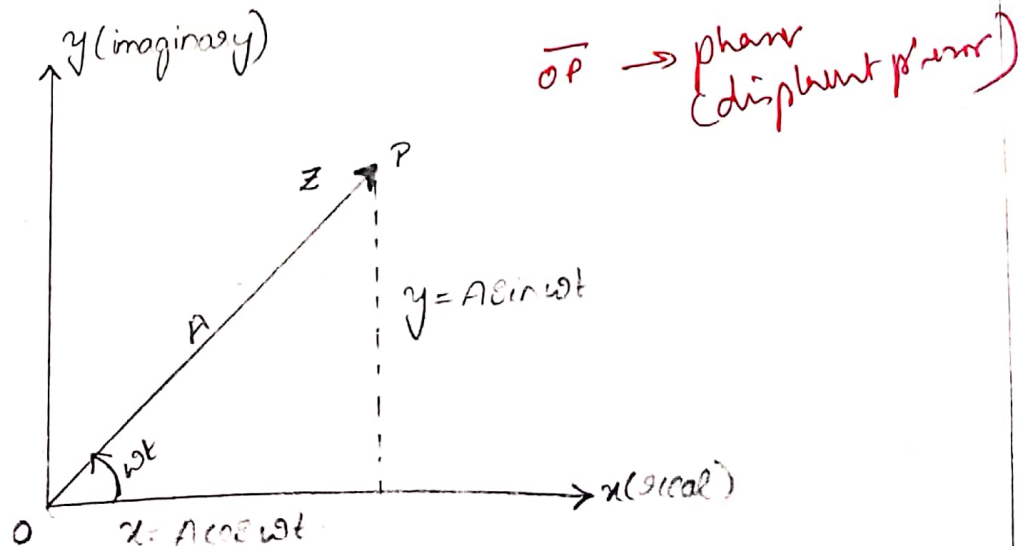 y(imaginary)
OP → phasor
(displacement phasor)
Z P
A
y = A sin ωt
ωt
x(real)
O x = A cos ωt